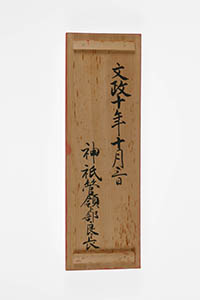 文政十年十月三日
神祇管領卜部良長